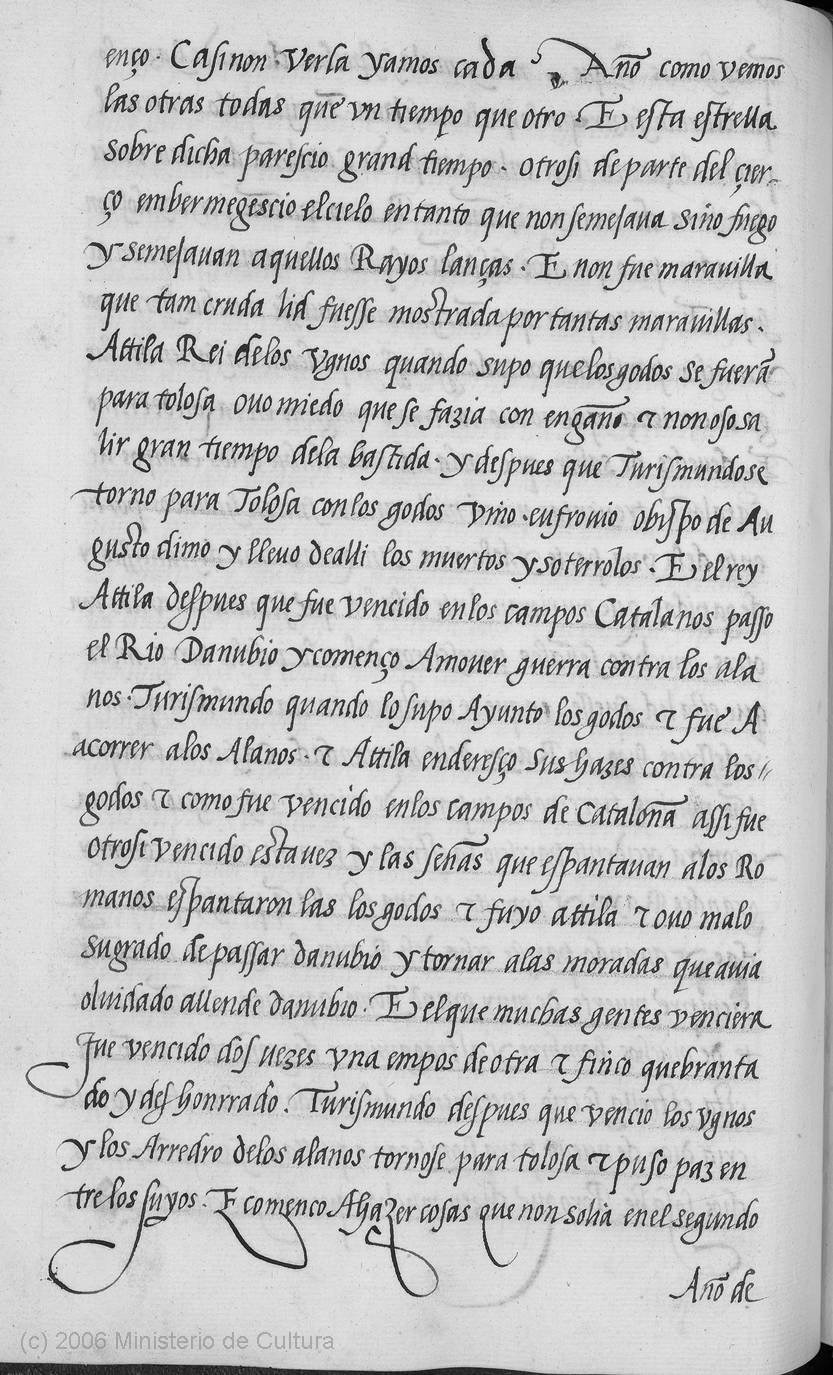 enço · Casinon · Verla yamos cada Año como vemos
las otras todas que vn tiempo que otro · E esta estrella
sobre dicha parescio grand tiempo · otrosi de parte del çier-
ço embermegescio el cielo en tanto que non semejaua sino fuego
y semejauan aquellos Rayos lanças · E non fue marauilla
que tam cruda lid fuesse mostrada por tantas marauillas .
Attila Rei delos vgnos quando supo que los godos se fuerã
para tolosa ouo miedo que se fazia con engaño ⁊ non oso sa
lir gran tiempo dela bastida · y despues que Turismundo se
torno para Tolosa con los godos vino · eufronio obispo de Au
gusto dimo y lleuo de alli los muertos y soterrolos · E el rey
Attila despues que fue vencido en los campos Catalanos passo
el Rio Danubio y començo Amouer guerra contra los ala
nos · Turismundo quando lo supo Ayunto los godos ⁊ fue A
acorrer alos Alanos · ⁊ Attila enderesço sus hazes contra los //
godos ⁊ como fue vencido en los campos de Cataloña assi fue
otrosi vencido esta uez y las señas que espantauan alos Ro
manos espantaron las los godos ⁊ fuyo attila ⁊ ouo malo
su grado de passar danubio y tornar alas moradas que auia
oluidado allende danubio · E el que muchas gentes venciera
fue vencido dos uezes vna empos de otra ⁊ finco quebranta
do y deshonrrado . Turismundo despues que vencio los vgnos
y los Arredro delos alanos tornose para tolosa ⁊ puso paz en
tre los suyos · E comenco Ahazer cosas que non solia en el segundo
Año de
(c) 2006 Ministerio de Cultura